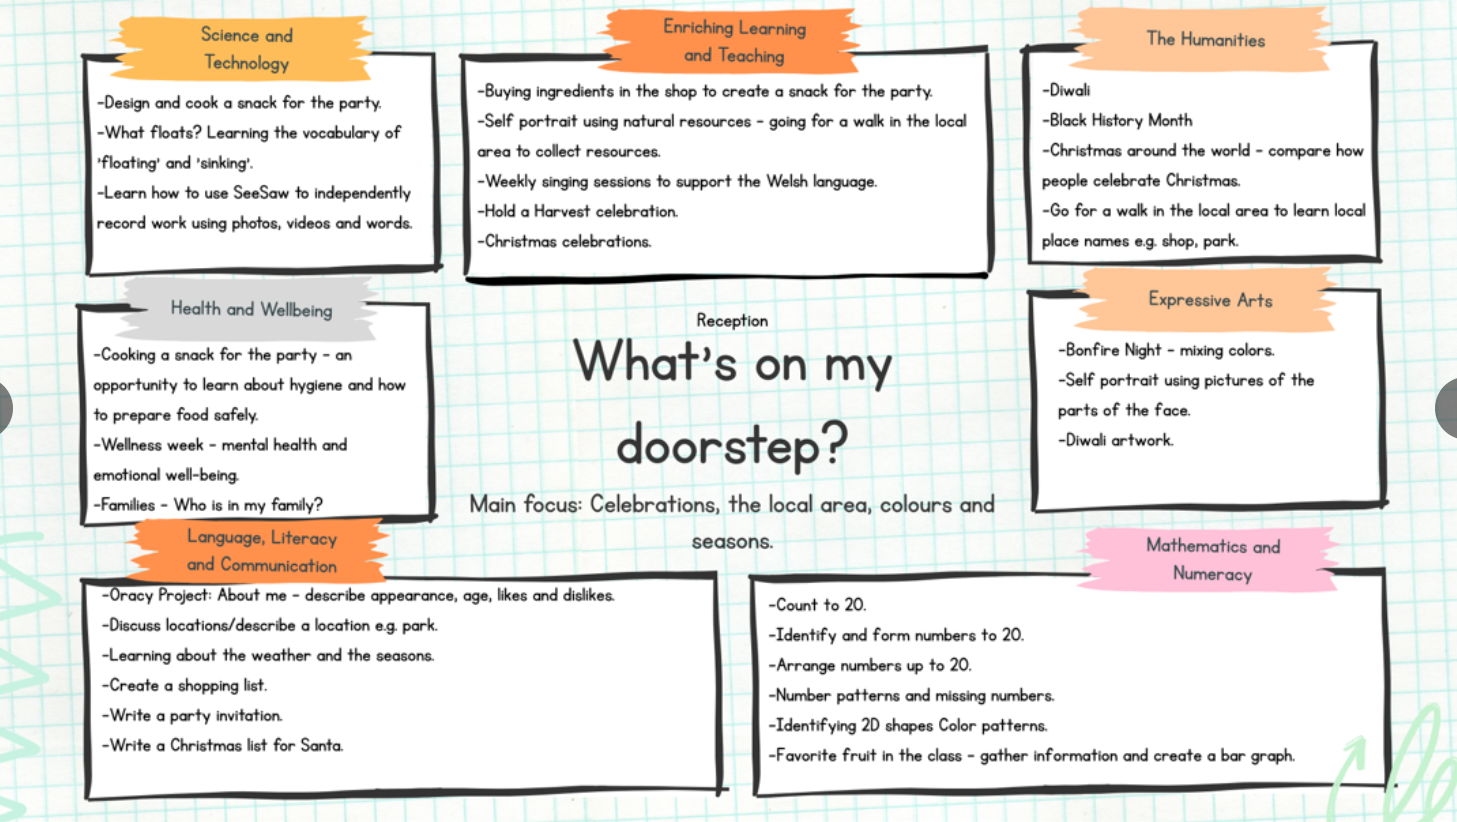 Science and
Technology
-Design and cook a snack for the party.
-What floats? Learning the vocabulary of
'floating' and 'sinking'.
-Learn how to use SeeSaw to independently
record work using photos, videos and words.
Enriching Learning
and Teaching
-Buying ingredients in the shop to create a snack for the party.
-Self portrait using natural resources - going for a walk in the local
area to collect resources.
-Weekly singing sessions to support the Welsh language.
-Hold a Harvest celebration.
-Christmas celebrations.
The Humanities
-Diwali
-Black History Month
-Christmas around the world - compare how
people celebrate Christmas.
-Go for a walk in the local area to learn local
place names e.g. shop, park.
Health and Wellbeing
-Cooking a snack for the party - an
opportunity to learn about hygiene and how
to prepare food safely.
-Wellness week - mental health and
emotional well-being.
-Families - Who is in my family?
Reception
What's on my
doorstep?
Main focus: Celebrations, the local area, colours and
seasons.
Expressive Arts
-Bonfire Night - mixing colors.
-Self portrait using pictures of the
parts of the face.
-Diwali artwork.
Language, Literacy
and Communication
-Oracy Project: About me - describe appearance, age, likes and dislikes.
-Discuss locations/describe a location e.g. park.
-Learning about the weather and the seasons.
-Create a shopping list.
-Write a party invitation.
-Write a Christmas list for Santa.
Mathematics and
Numeracy
-Count to 20.
-Identify and form numbers to 20.
-Arrange numbers up to 20.
-Number patterns and missing numbers.
-Identifying 2D shapes Color patterns.
-Favorite fruit in the class - gather information and create a bar graph.